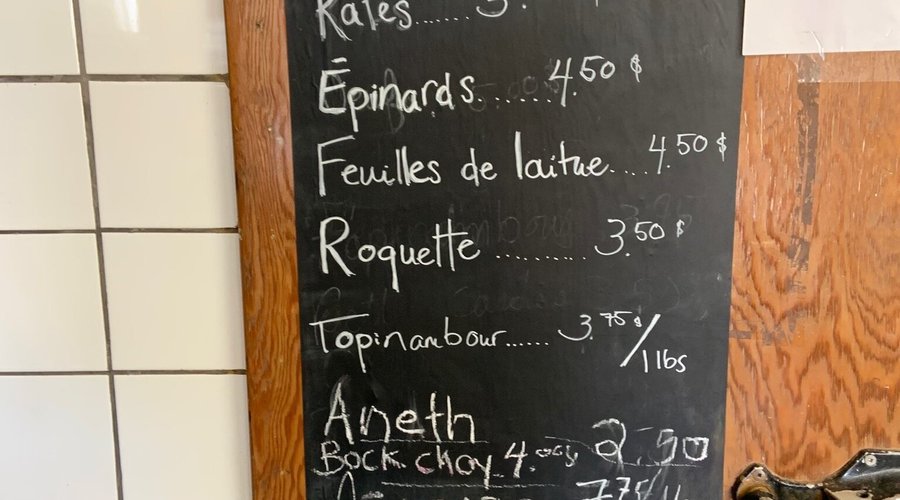 Kales......3.
Épinards......4.50 $
Feuilles de laitue....4.50 $
Roquette..........3.50 $
Topinambour......3.75 $/1 lbs
Aneth 2.50
Bock choy 4.